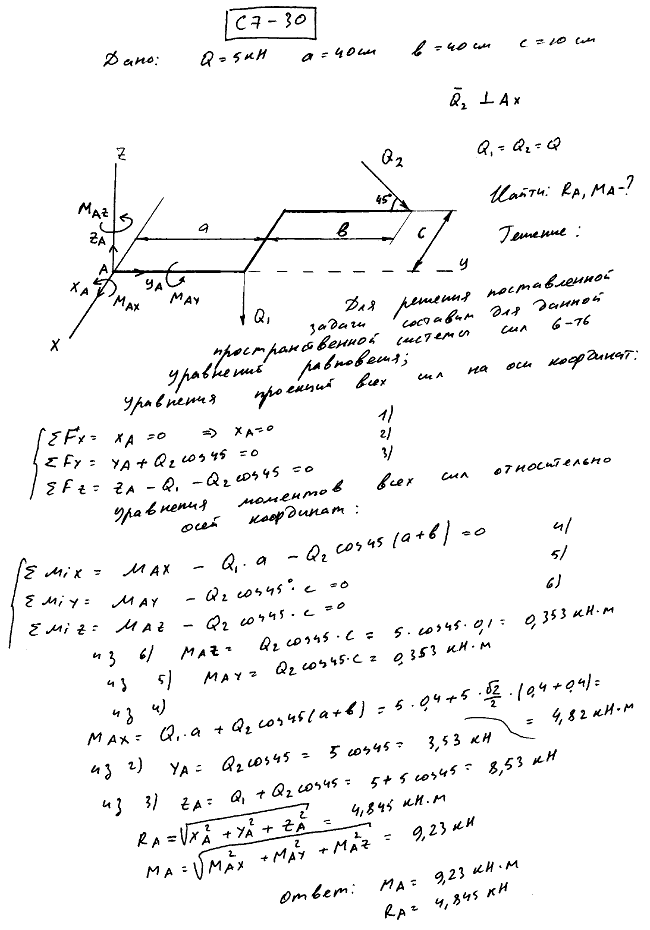 С7-30
Дано: Q = 5кН a = 40см в = 40см c = 10см
Q̄₂ ⊥ Ax
Q₁ = Q₂ = Q
Найти: RA, MA-?
Решение:
Z
Q₂
45°
MAZ
ZA
a
в
c
A
YA
MAY
y
XA
MAX
Q₁
X
Для решения поставленной
задачи составим для данной
пространственной системы сил 6-ть
уравнений равновесия;
Уравнения проекций всех сил на оси координат:
ΣFx = XA = 0 ⇒ XA=0 1)
ΣFy = YA + Q₂cos45 = 0 2)
ΣFz = ZA - Q₁ - Q₂cos45 = 0 3)
Уравнения моментов всех сил относительно
осей координат:
ΣMix = MAX - Q₁·a - Q₂cos45(a+в) = 0 4)
ΣMiy = MAY - Q₂cos45°·c = 0 5)
ΣMiz = MAZ - Q₂cos45·c = 0 6)
из 6) MAZ = Q₂cos45·c = 5·cos45·0,1 = 0,353 кН·м
из 5) MAY = Q₂cos45·c = 0,353 кН·м
из 4)
MAX = Q₁·a + Q₂cos45(a+в) = 5·0,4+5·√2/2·(0,4+0,4)=
= 4,82 кН·м
из 2) YA = Q₂cos45 = 5cos45 = 3,53 кН
из 3) ZA = Q₁ + Q₂cos45 = 5+5cos45 = 8,53 кН
RA = √(XA² + YA² + ZA²) = 4,845 кН·м
MA = √(MAX² + MAY² + MAZ²) = 9,23 кН
Ответ: MA = 9,23 кН·м
RA = 4,845 кН